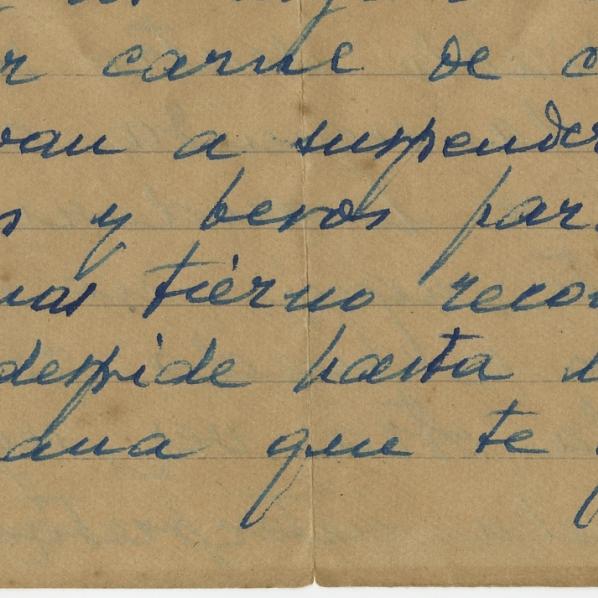 carne de
van a suspender
y besos par
mas tierno recor
despide hasta
ana que te